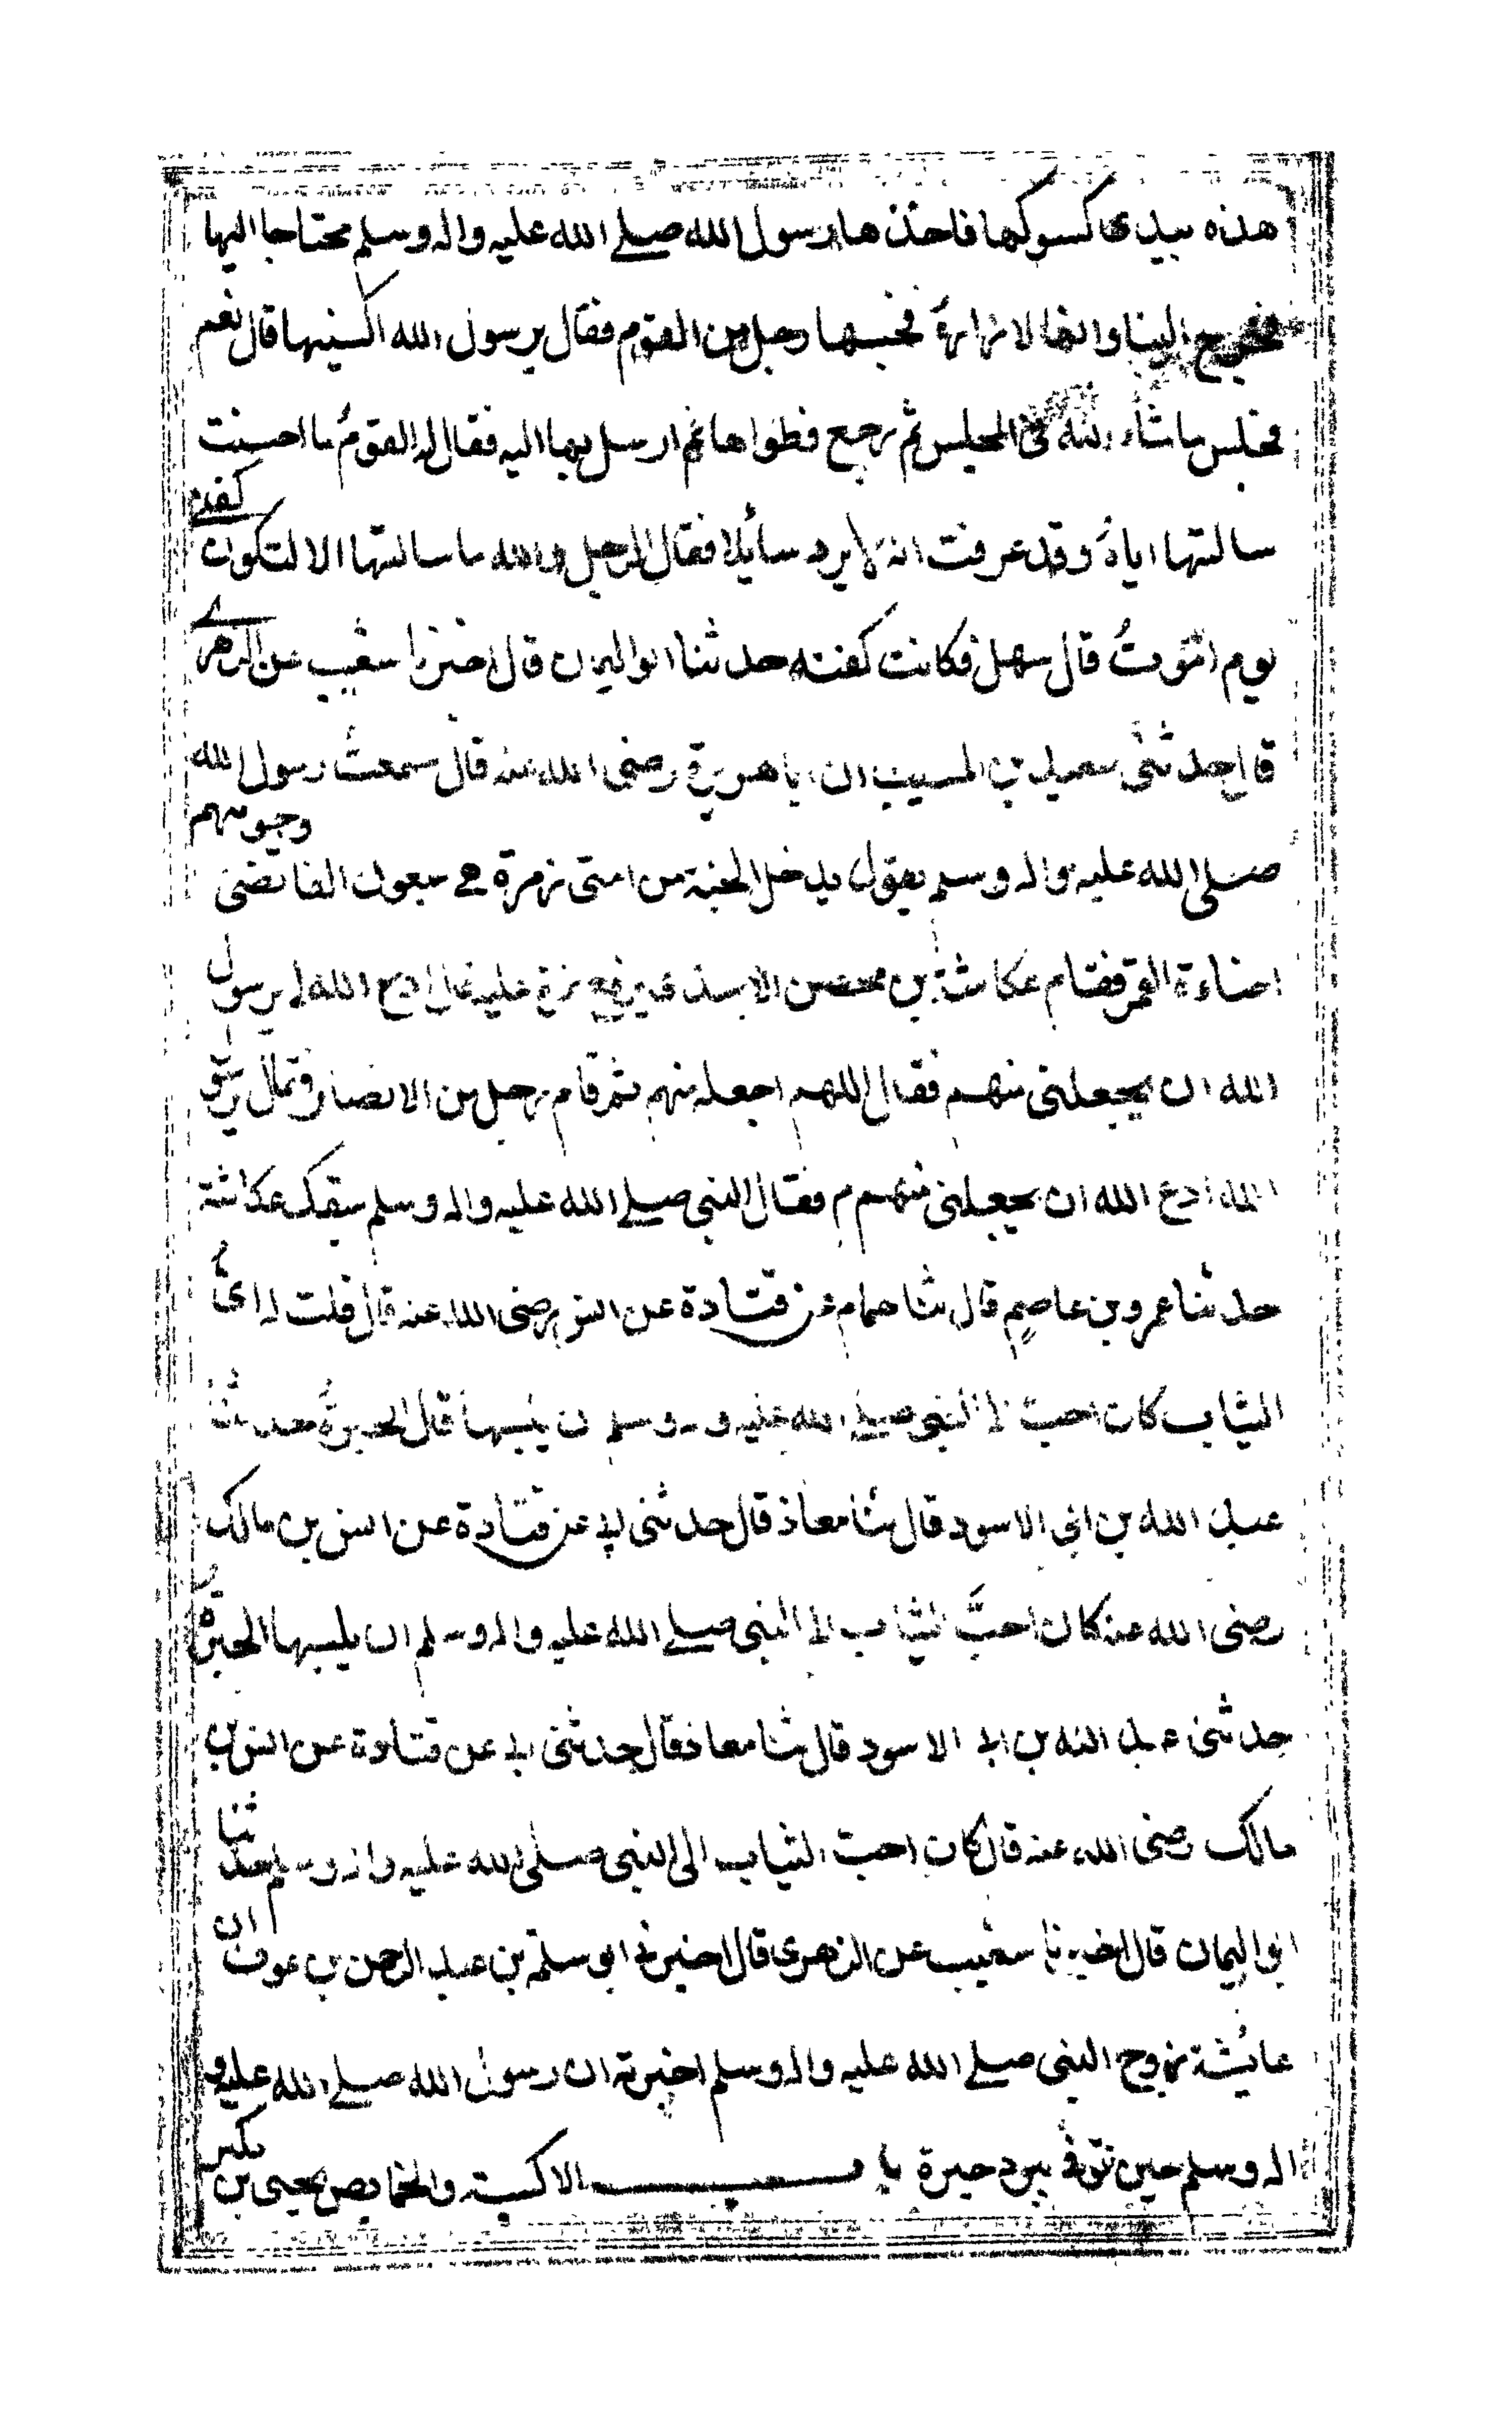 هذه بيدى اكسوكها فاخذ ها رسول الله صلى الله عليه واله وسلم محتاجا اليها
فخرج الينا وانها لازاره فحبسها رجل من القوم فقال يرسول الله اكسنيها قال نعم
فجلس ما شاء الله فى المجلس ثم رجع فطواها ثم ارسل بها اليه فقال له القوم ما احسنت
سالتها اياه وقد عرفت انه لا يرد سائلا فقال الرجل والله ما سالتها الا لتكون كفنى
يوم اموت قال سهل فكانت كفنه حدثنا ابو اليمان قال اخبرنا شعيب عن الزهرى
قال حدثنى سعيد بن المسيب ان اباهريرة رضى الله عنه قال سمعت رسول الله
صلى الله عليه واله وسلم يقول يدخل الجنة من امتى زمرة هى سبعون الفا تضئ وجوههم
اضاءة القمر فقام عكاشة بن محصن الاسدى يرفع نمرة عليه قال ادع الله لى يرسول
الله ان يجعلنى منهم فقال اللهم اجعله منهم ثم قام رجل من الانصار وقال يرسول
الله ادع الله ان يجعلنى منهم فقال النبى صلى الله عليه واله وسلم سبقك عكاشة
حدثنا عمرو بن عاصم قال ثنا همام عن قتادة عن انس رضى الله عنه قال قلت له اى
الثياب كان احب الى النبى صلى الله عليه و وسلم ان يلبسها قال الحبرة حدثنا
عبد الله بن ابى الاسود قال ثنا معاذ قال حدثنى ابى عن قتادة عن انس بن مالك
رضى الله عنه كان احب الثياب الى النبى صلى الله عليه واله وسلم ان يلبسها الحبرة
حدثنى عبد الله بن ابى الاسود قال ثنا معاذ قال حدثنى ابى عن قتادة عن انس بن
مالك رضى الله عنه قال كان احب الثياب الى النبى صلى الله عليه واله وسلم حدثنا
ابو اليمان قال اخبرنا شعيب عن الزهرى قال اخبرنى ابو سلمة بن عبد الرحمن بن عوف ان
عايشة زوج النبى صلى الله عليه واله وسلم اخبرته ان رسول الله صلى الله عليه و
اله وسلم حين توفى ببرد حبرة باب الاكسية والخمايص يحيى بن بكير